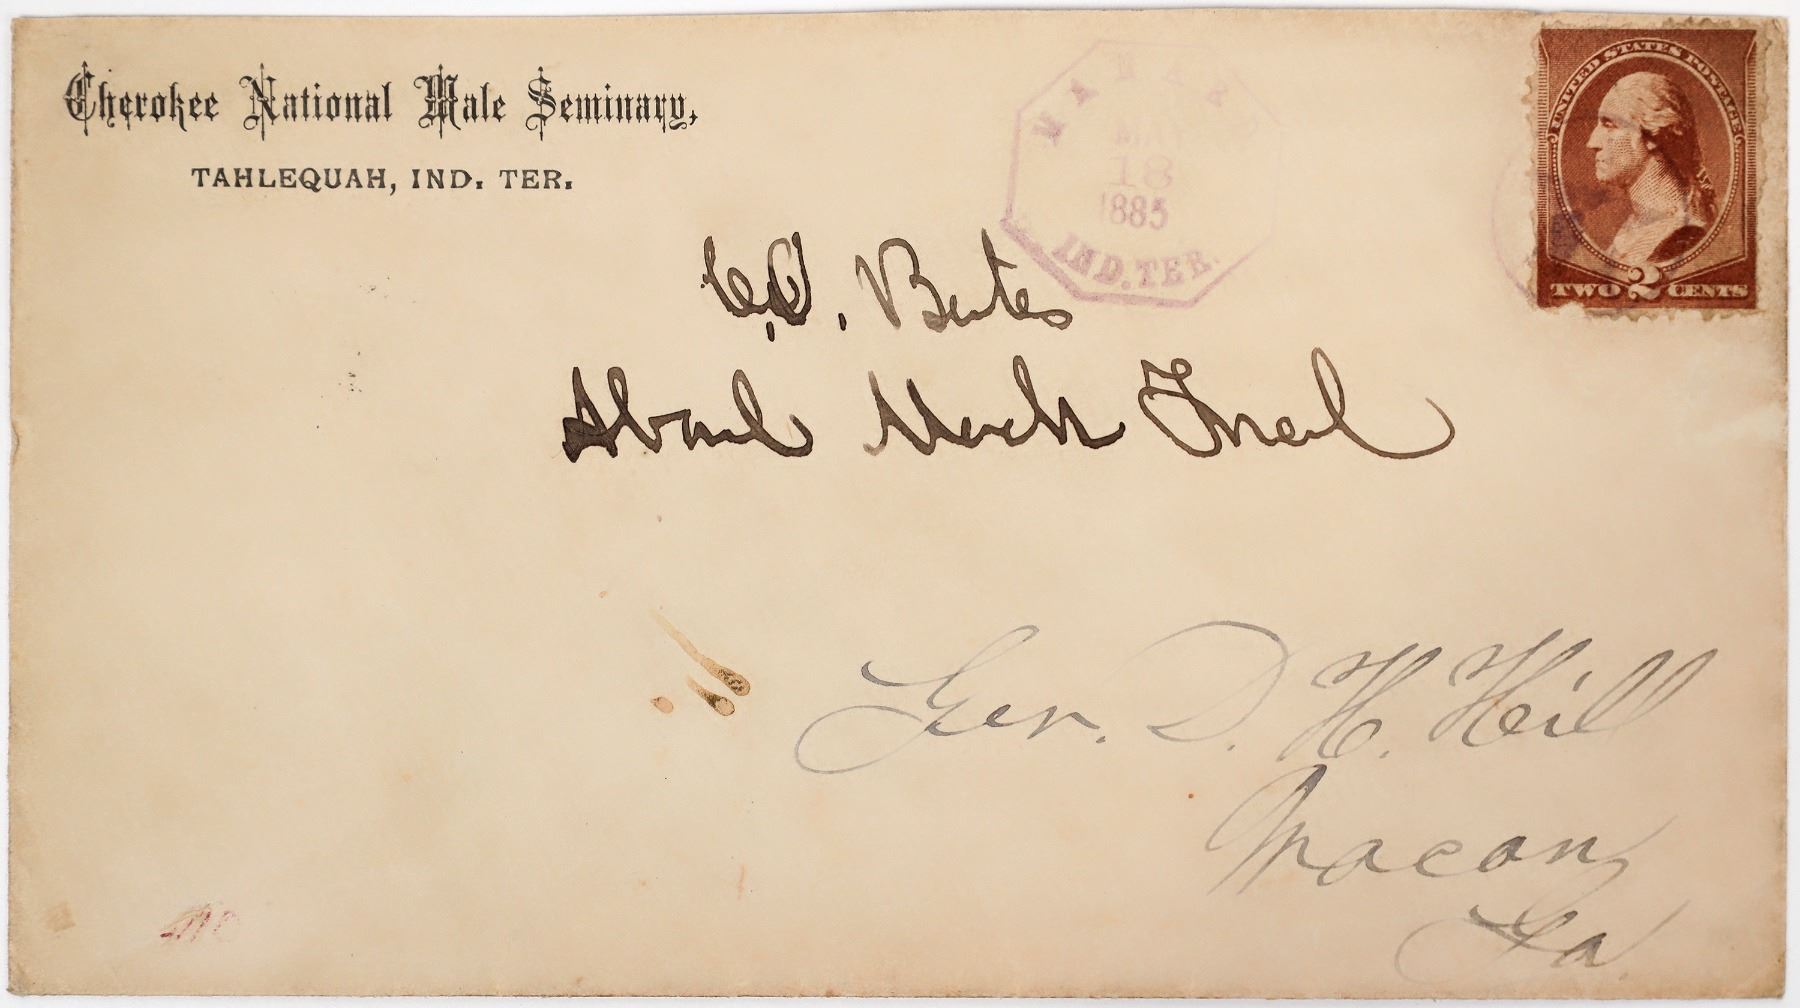 Cherokee National Male Seminary,
TAHLEQUAH, IND. TER.
MAY
18
1885
IND. TER.
UNITED STATES POSTAGE
2
TWO CENTS
C.O. Bates
About Mock Trial
Gen. D. H. Hill
Macon,
Ga.